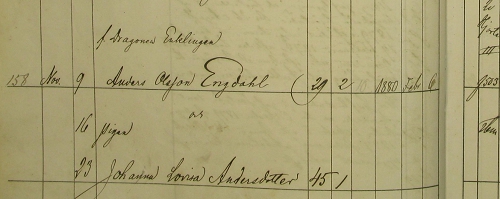 f. Dragonen Enklingen
158 Nov. 9 Anders Olofson Engdahl 29 2 1880 Febr 6
och
16 Pigan
23 Johanna Lovisa Andersdotter 45 1
III